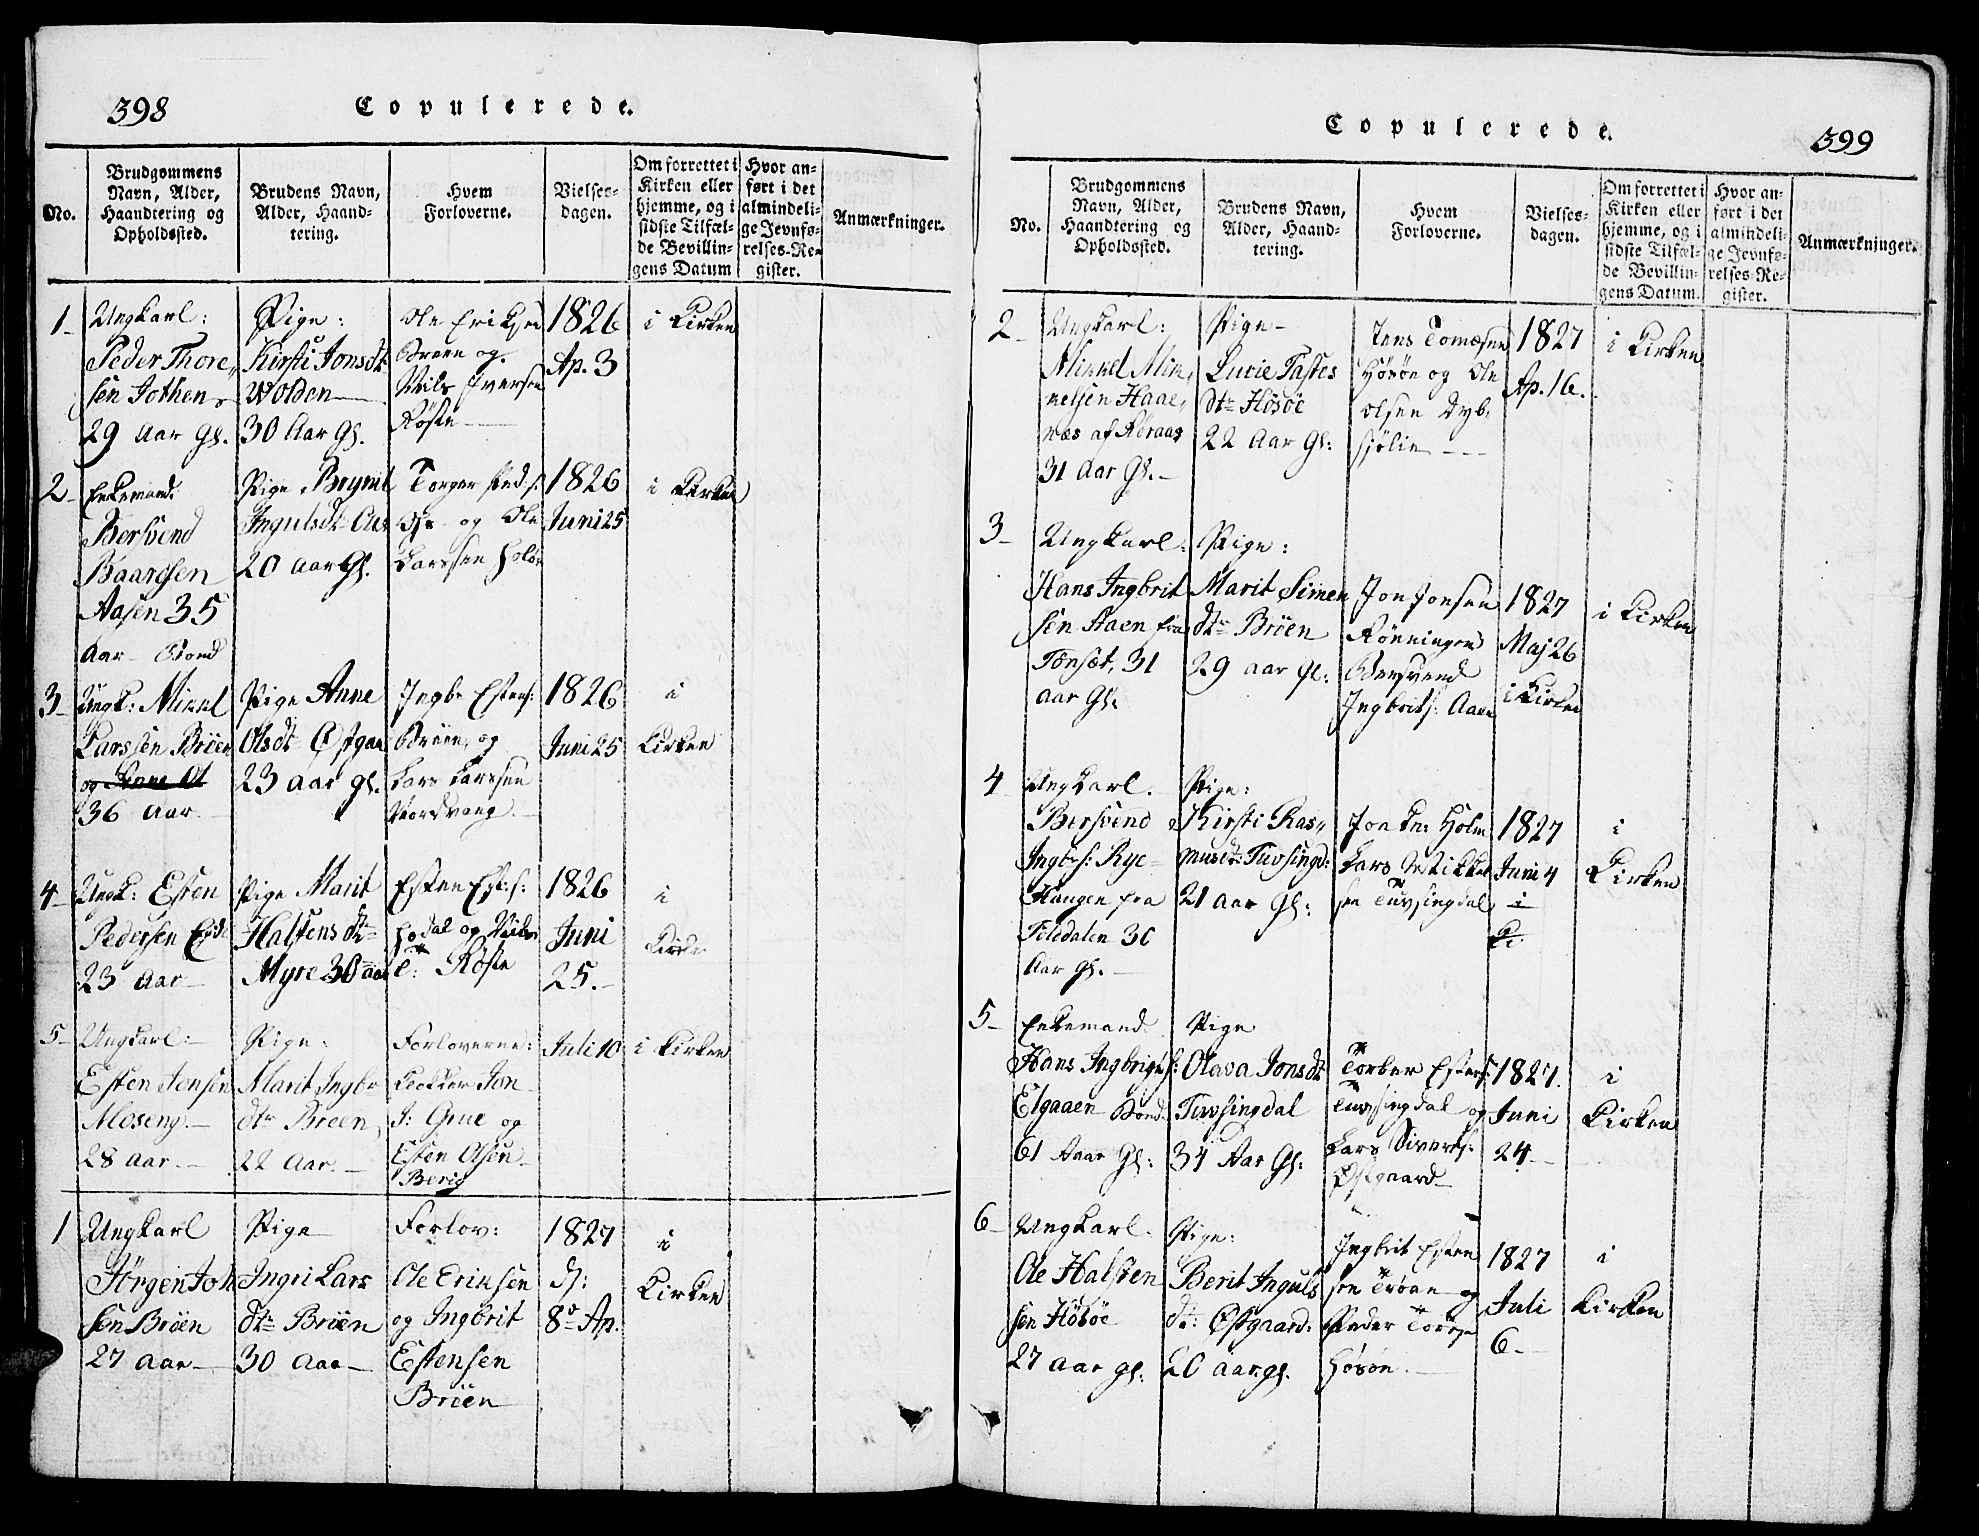 398
Copulerede.
No.
Brudgommens
Navn, Alder,
Haandtering og
Opholdssted.
Brudens Navn,
Alder, Haand-
tering.
Hvem
Forloverne.
Vielses-
dagen.
Om forrettet i
Kirken eller
hjemme, og i
sidste Tilfæl-
de Bevillin-
gens Datum
Hvor an-
ført i det
almindeli-
ge Jevnfø-
relses-Re-
gister.
Anmærkninger.
1
Ungkarl:
Peder Thore„
sen Jothen
29 Aar Gl.
Pige:
Kirsti Jonsdt
Wolden
30 Aar Gl.
Ole Eriksen
Breen og
Nils Iversen
Røste
1826
Ap. 3
i Kirken
2
Enkemand
Bersvend
Baardsen
Aasen 35
Aar
Pige Brynil
Ingulsdt
20 Aar Gl.
Torger
og Ole
Larssen Holøe
1826
Juni 25
i Kirken
3
Ungk: Mikkel
Larssen Bröen
og Anne Ol
36 Aar
Pige Anne
Olsdt Østgaa
23 aar gl.
Ingbr Estens:
Bröen, og
Lars Larssen
Nordvang
1826
Juni 25
i
Kirken
4
Ungk: Esten
Pedersen
23 Aar
Pige Marit
Halstensdt
Myre 30 aar
Esten
og Nils
Røste
1826
Juni
25.
i
Kirke
5
Ungkarl:
Esten Jonsen
Moseng
28 Aar
Pige:
Marit Ingbr
dtr Breen
22 Aar
Forloverne:
Klokker Jon
J: Grue og
Esten Olsen
Berig
Juli 10
i Kirken
1
Ungkarl
Jörgen Joh
sen Bröen
27 Aar
Pige
Ingri Lars
dtr Bröen
30 Aar
Forlov:
Ole Eriksen
og Ingbrit
Estensen
Bröen
1827
d:
8de Ap.
i
Kirken
Copulerede.
399
No.
Brudgommens
Navn, Alder,
Haandtering og
Opholdssted.
Brudens Navn,
Alder, Haand-
tering.
Hvem
Forloverne.
Vielses-
dagen.
Om forrettet i
Kirken eller
hjemme, og i
sidste Tilfæl-
de Bevillin-
gens Datum.
Hvor an-
ført i det
almindeli-
ge Jevnfø-
relses-Re-
gister.
Anmærkninger.
2
Ungkarl:
Mikkel Mik„
kelsen Haae„
næs af Røraas
31 Aar Gl.
Pige
Lucie Tastes
dtr Høsøe
22 Aar Gl:
Jens Tomæsen
Høsøen og Ole
Olsen Dyb„
sjölie
1827
Ap. 16.
i Kirken
3
Ungkarl:
Hans Ingbrit
sen Aaen fra
Tønset, 31
aar Gl.
Pige:
Marit Simen
dtr Bröen
29 aar gl:
Jon Jonsen
Rønningen
Bersvend
Ingbrits: Aaen
1827
Maj 26
i Kirken
i Kirken
4
Ungkarl.
Bersvend
Ingbrs: Rye
Haugen fra
Tilsdalen 30
Aar gl.
Pige:
Kirsti Ras„
musdt: Tuvsingd:
21 Aar Gl:
Jon Holm
Lars Mikkel
sen Tuvsingdal
1827
Juni 4
i
Ki
i
Kirken
5
Enkemand
Hans Ingbrigts:
Elgaaen
61 Aaar Gl:
Pige
Olava Jonsdt
Tuvsingdal
34 Aar Gl:
Torber Estens:
Tuvsingdal og
Lars Siverts:
Østgaard
1827.
Juni
24
i
Kirken
6
Ungkarl.
Ole Halsten
sen Høsøe
27 aar gl.
Pige:
Berit Inguls
dt: Østgaard:
20 aar gl.
Ingbrit Esten
sen Troen og
Peder
Høsøen
1827
Juli
6
i
Kirken